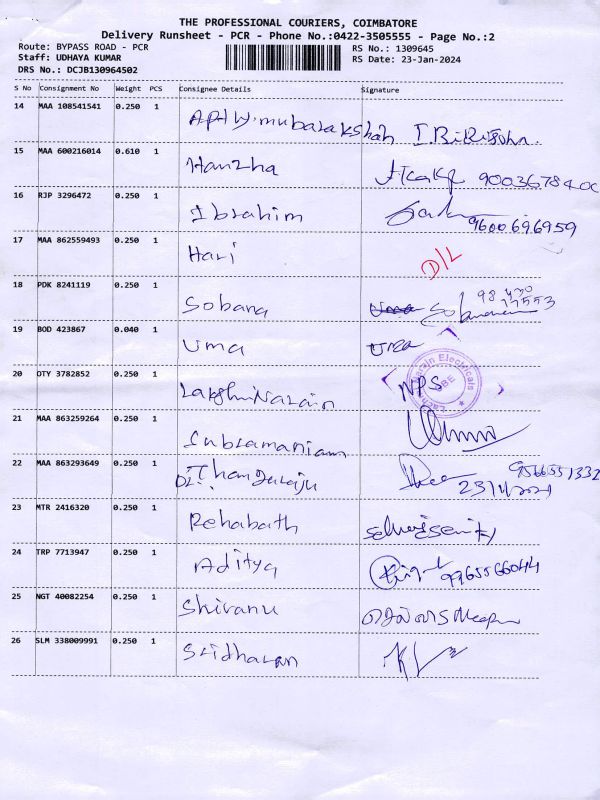 THE PROFESSIONAL COURIERS, COIMBATORE
Delivery Runsheet - PCR - Phone No.:0422-3505555 - Page No.:2
Route: BYPASS ROAD - PCR
RS No.: 1309645
Staff: UDHAYA KUMAR
RS Date: 23-Jan-2024
DRS No.: DCJB130964502
S No Consignment No Weight PCS Consignee Details Signature
14 MAA 108541541 0.250 1 mubarakshah
15 MAA 600216014 0.610 1 Hamzha
16 RJP 3296472 0.250 1 Ibrahim 9600696959
17 MAA 862559493 0.250 1 Hari D/L
18 PDK 8241119 0.250 1 Sobana
19 BOD 423867 0.040 1 Uma Uma
20 OTY 3782852 0.250 1 Lakshmi Narain NPS
21 MAA 863259264 0.250 1 Subramaniam
22 MAA 863293649 0.250 1 Dr. Thangaraju 9566551332
23 MTR 2416320 0.250 1 Rehabath
24 TRP 7713947 0.250 1 Aditya 9965566044
25 NGT 40082254 0.250 1 Shivanu
26 SLM 338009991 0.250 1 Sridharan